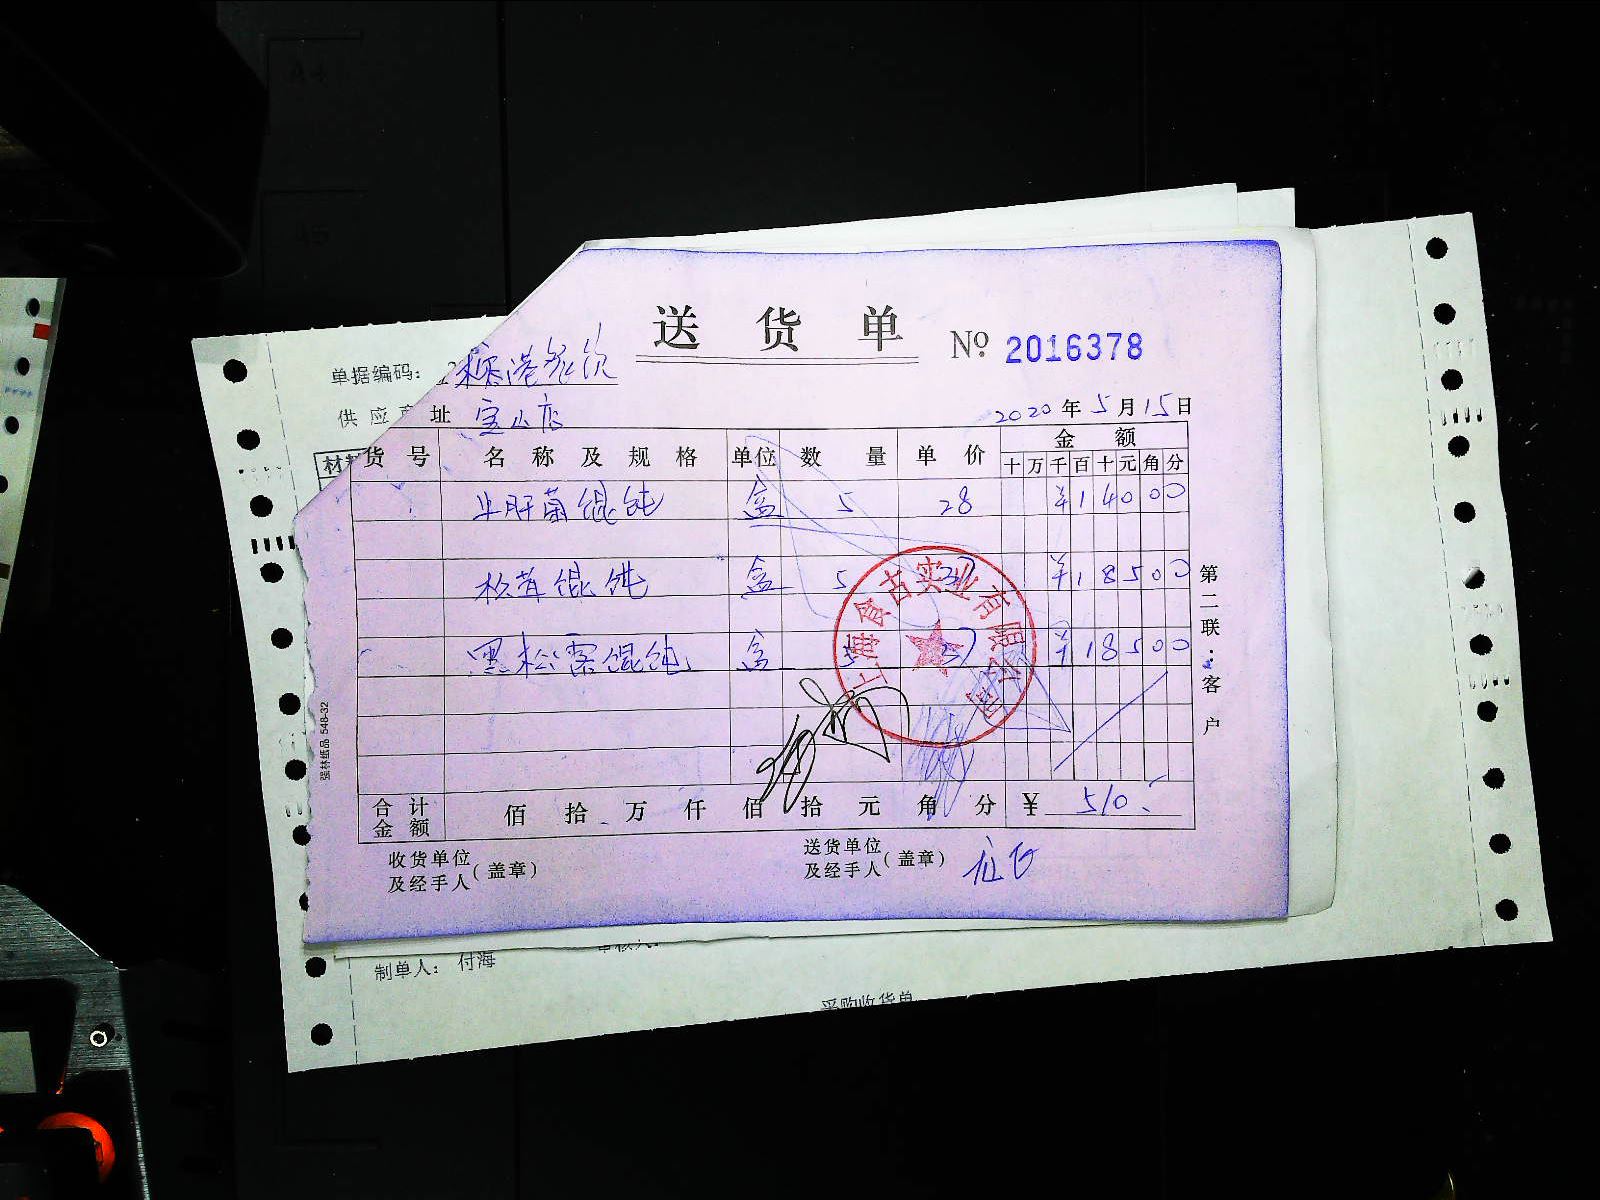 送货单 № 2016378
单据编码：
供应
址 宝山店
2020年5月15日
货号 名称及规格 单位 数量 单价 金额
十万千百十元角分
牛肝菌馄饨 盒 5 28 ¥14000
松茸馄饨 盒 5 37 ¥18500
黑松露馄饨 盒 5 37 ¥18500
上海食古实业有限公司
合计金额 佰拾万仟佰拾元角分 ¥ 510.-
收货单位及经手人(盖章)
送货单位及经手人(盖章)
第二联：客户
强林纸品 548-32
制单人： 付海
采购收货单